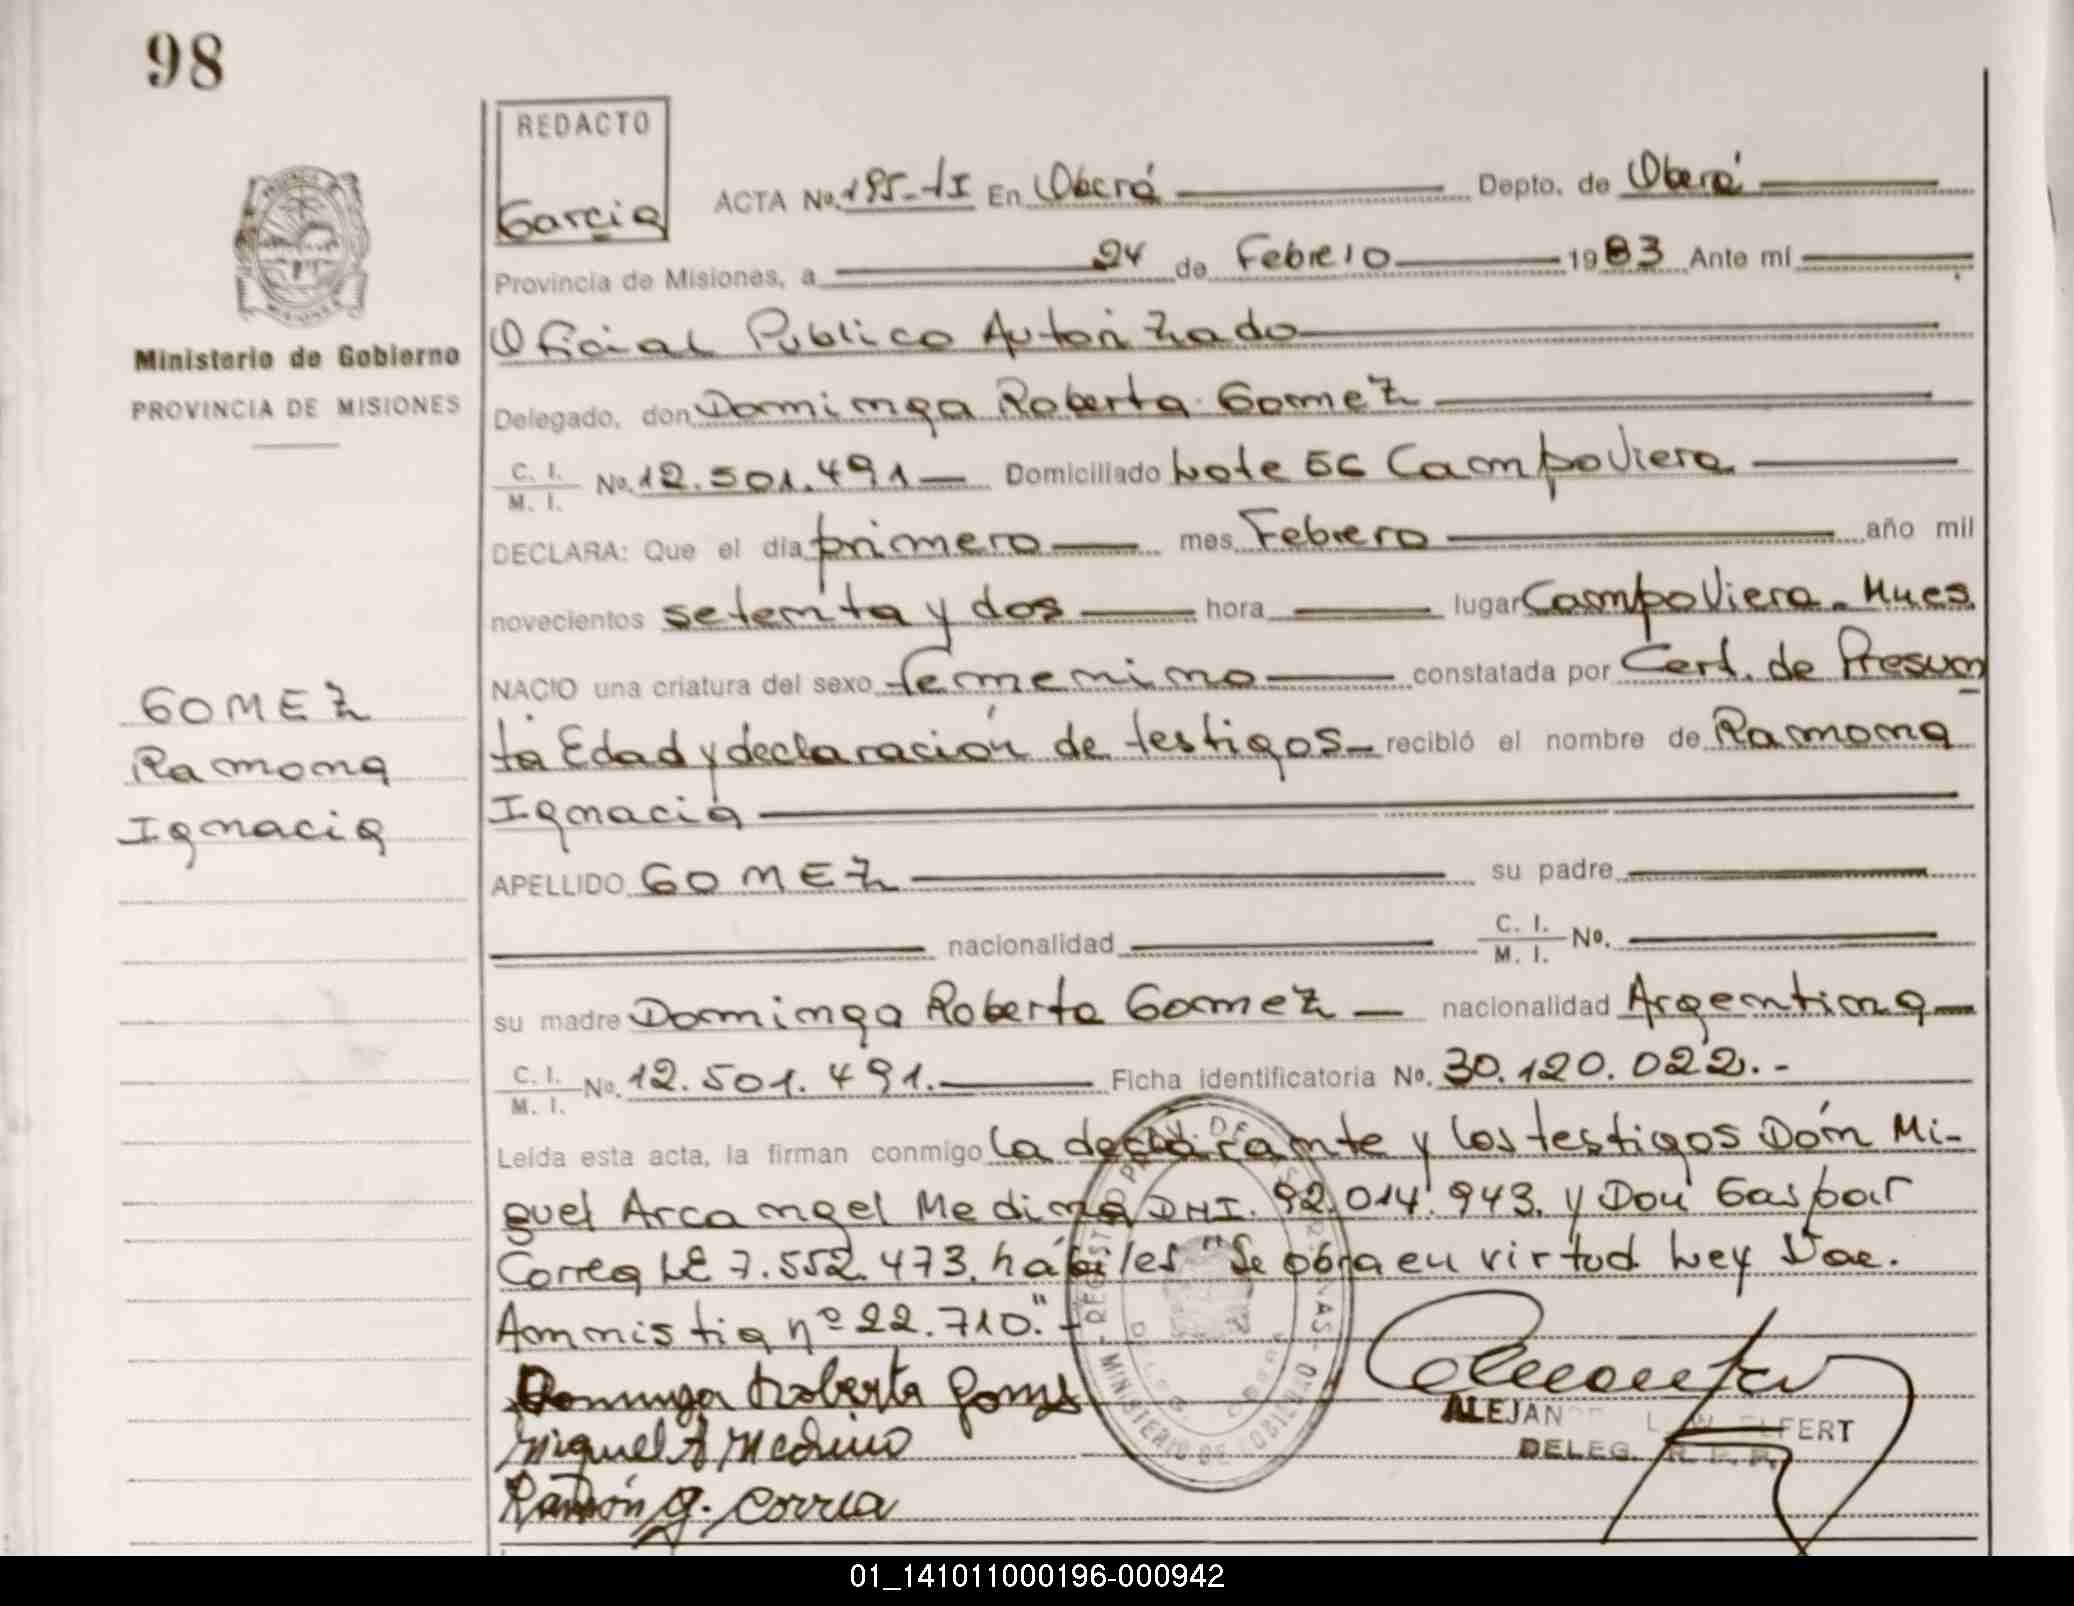 98
REDACTO
Garcia
ACTA No. 195-TI En Oberá Depto. de Oberá
Provincia de Misiones, a 24 de Febrero 1983 Ante mí
Oficial Publico Autorizado
Ministerio de Gobierno
PROVINCIA DE MISIONES
Delegado, don Dominga Roberta Gomez
C. I. M. I. No. 12.501.491 Domiciliado Lote 56 Campo Viera
DECLARA: Que el día primero mes Febrero año mil
novecientos setenta y dos hora lugar Campo Viera - Mnes
NACIO una criatura del sexo femenino constatada por Cert. de Presun
ta Edad y declaración de testigos recibió el nombre de Ramona
Ignacia
GOMEZ
Ramona
Ignacia
APELLIDO GOMEZ su padre
nacionalidad C. I. M. I. No.
su madre Dominga Roberta Gomez nacionalidad Argentina
C. I. M. I. No. 12.501.491. Ficha identificatoria No. 30.120.022.-
Leída esta acta, la firman conmigo la declarante y los testigos Dón Mi-
guel Arcangel Medina DNI. 92.014.943. y Don Gaspar
Correa LE 7.552.473. hábiles "Se obra en virtud Ley Nac.
Amnistia nº 22.710."-
Dominga Roberta Gomes
Miguel A Medina
Ramón G. Correa
DELEG. R. P. P.
MINISTERIO DE GOBIERNO
01_141011000196-000942